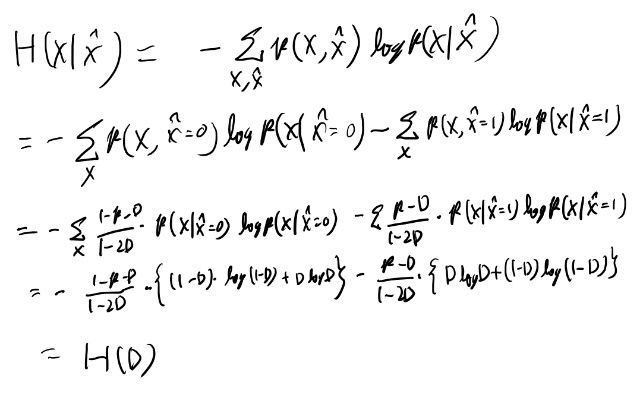 H(X|X̂) = - Σ_{X,X̂} p(X,X̂) log p(X|X̂)
= - Σ_X p(X, X̂=0) log p(X|X̂=0) - Σ_X p(X, X̂=1) log p(X|X̂=1)
= - Σ_X (1-p-D)/(1-2D) · p(X|X̂=0) log p(X|X̂=0) - Σ (p-D)/(1-2D) · p(X|X̂=1) log p(X|X̂=1)
= - (1-p-D)/(1-2D) · {(1-D) · log(1-D) + D log D} - (p-D)/(1-2D) · {D log D + (1-D) log(1-D)}
= H(D)